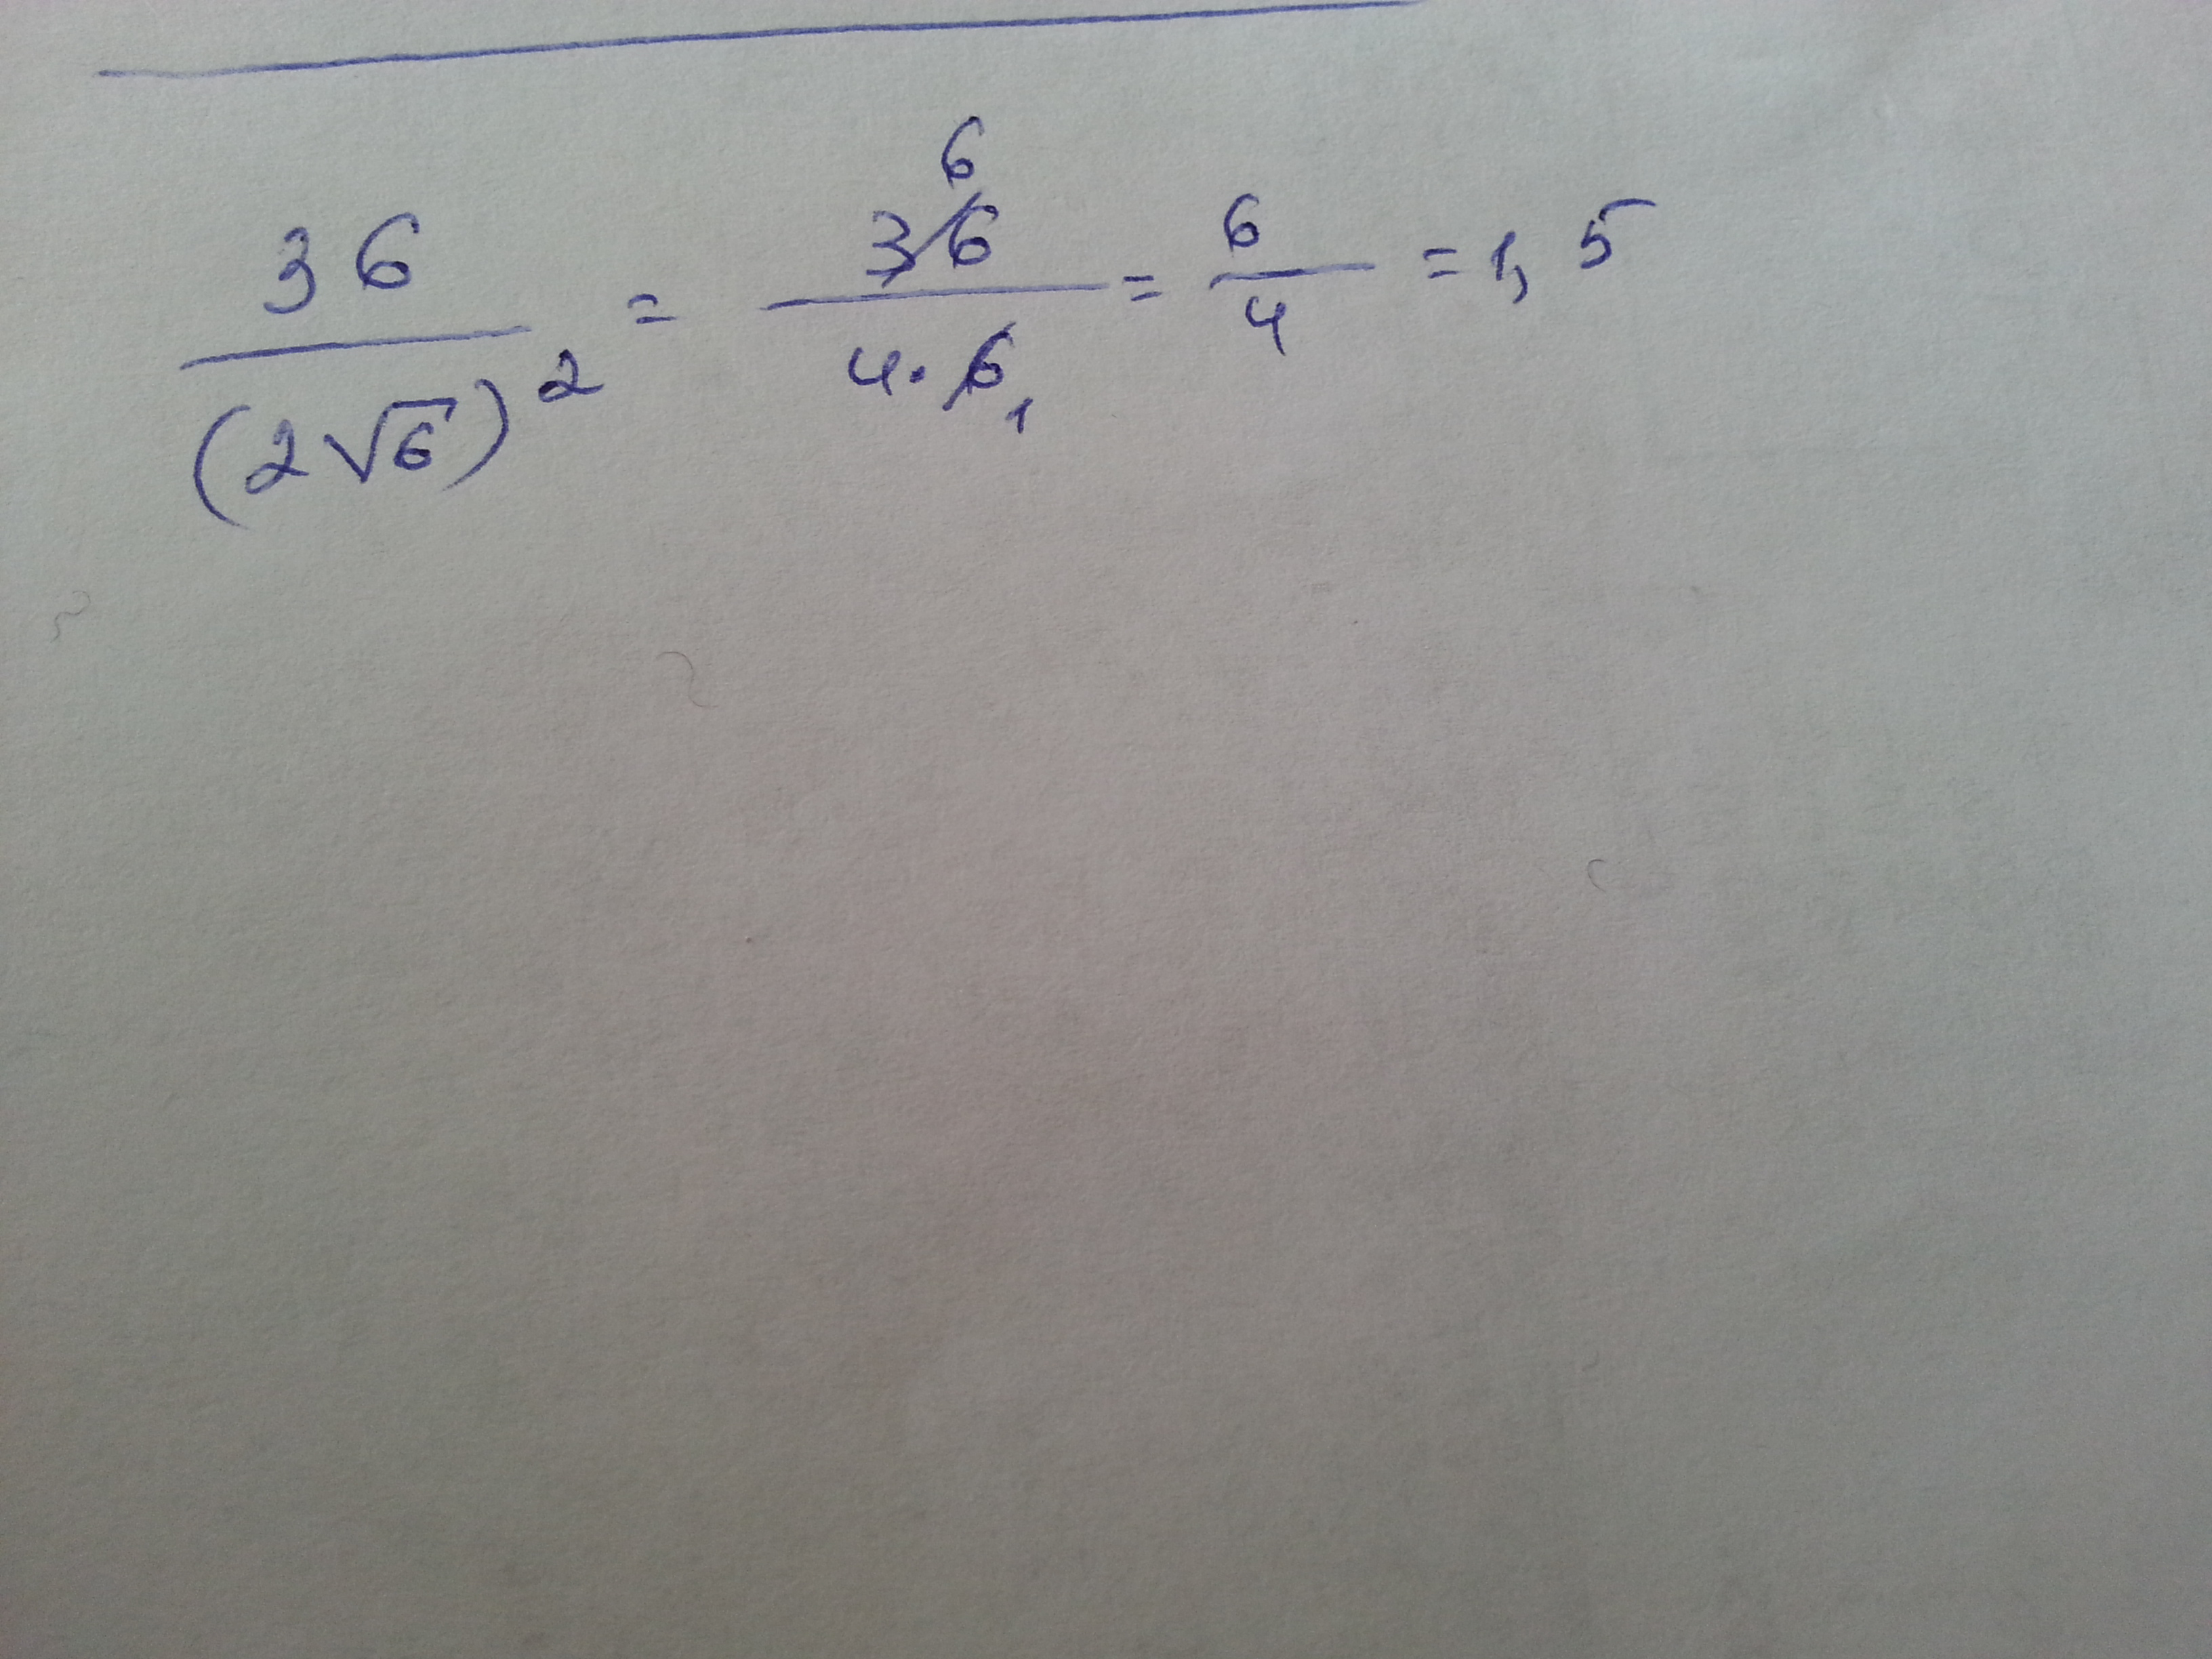 36/(2√6)² = 36⁶/4·6₁ = 6/4 = 1,5